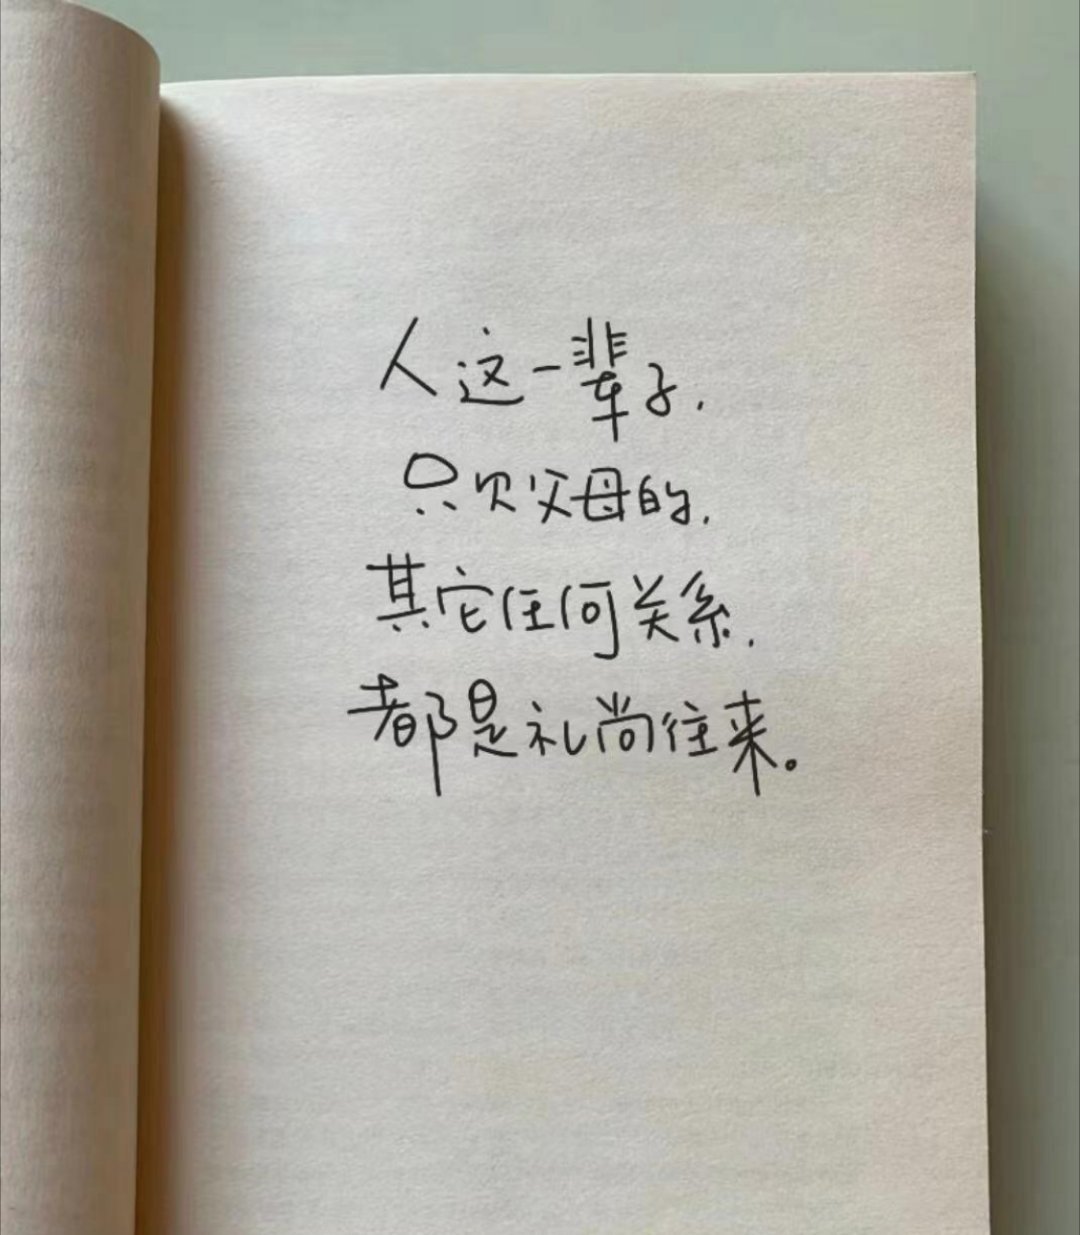 人这一辈子,
只欠父母的,
其它任何关系,
都是礼尚往来。